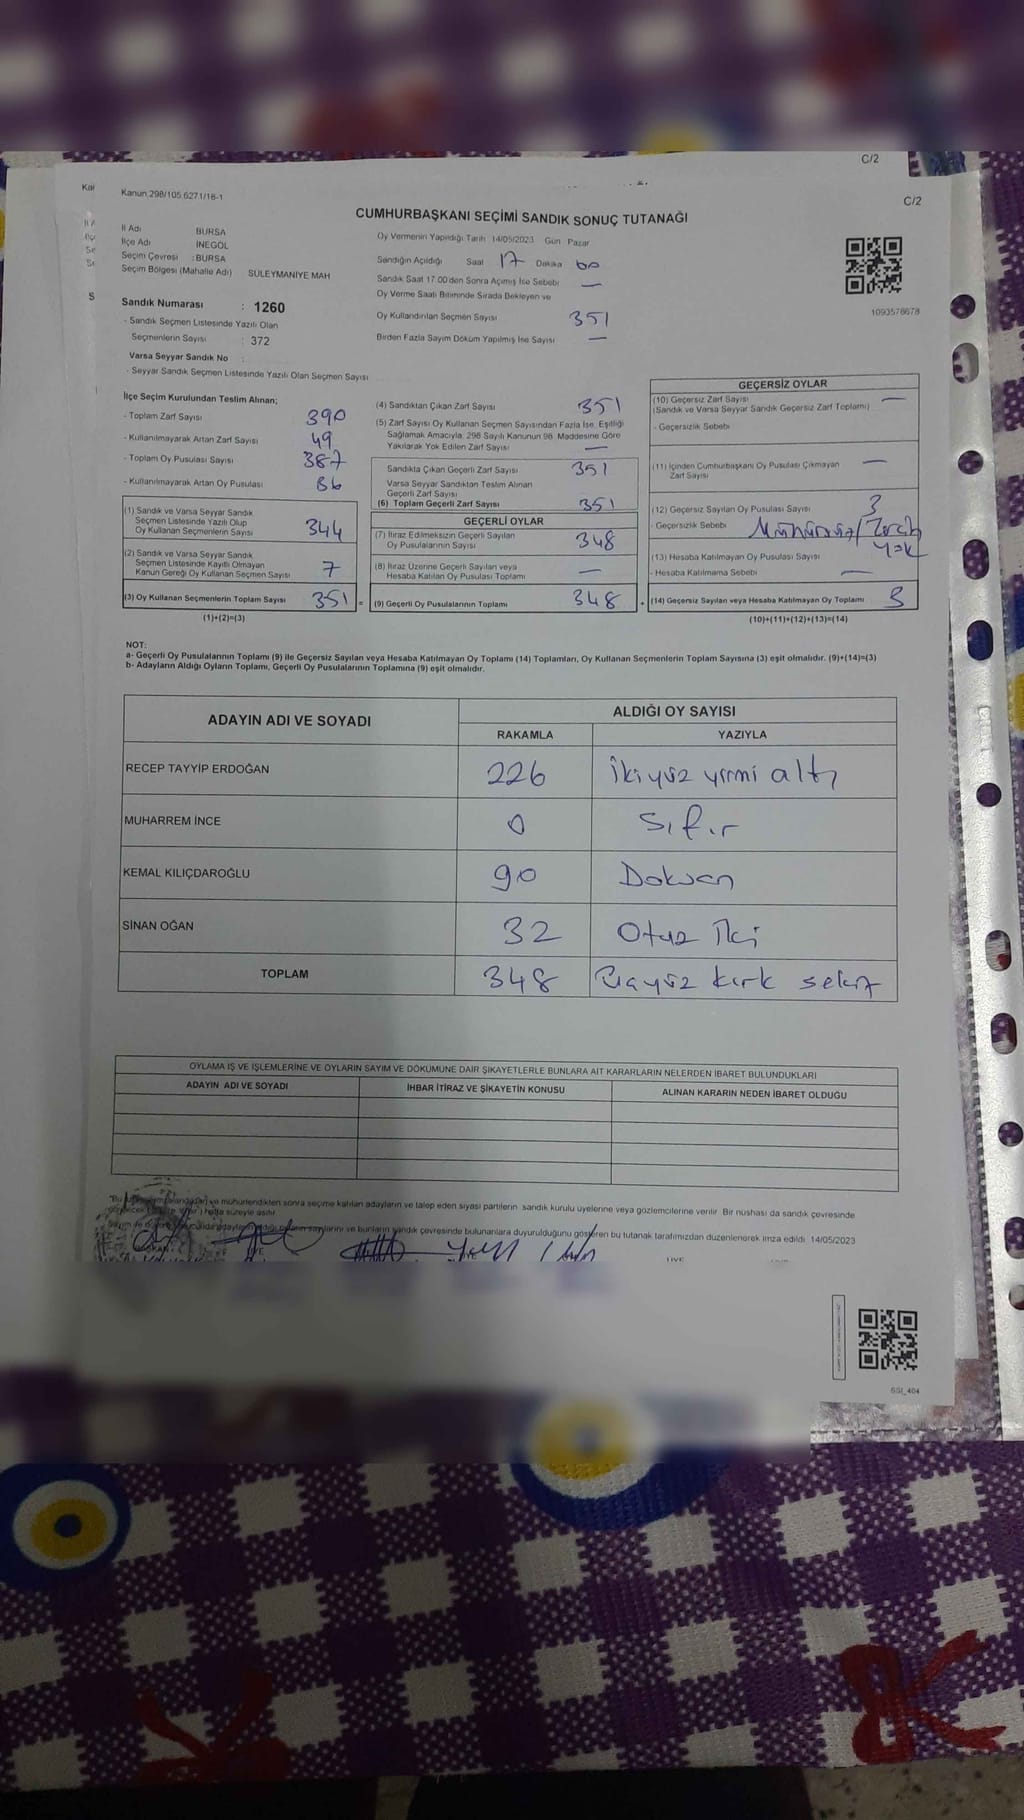 C/2
Kanun.298/105.6271/16-1
C/2
CUMHURBAŞKANI SEÇİMİ SANDIK SONUÇ TUTANAĞI
İl Adı BURSA
İlçe Adı İNEGÖL
Seçim Çevresi : BURSA
Seçim Bölgesi (Mahalle Adı) SÜLEYMANİYE MAH
Oy Vermenin Yapıldığı Tarih 14/05/2023 Gün Pazar
Sandığın Açıldığı Saat 17 Dakika 00
Sandık Saat 17.00'den Sonra Açımış İse Sebebi —
Oy Verme Saati Bitiminde Sırada Bekleyen ve
Oy Kullandırılan Seçmen Sayısı 351
Birden Fazla Sayım Döküm Yapılmış İse Sayısı —
1093576678
Sandık Numarası : 1260
- Sandık Seçmen Listesinde Yazılı Olan
Seçmenlerin Sayısı : 372
Varsa Seyyar Sandık No :
- Seyyar Sandık Seçmen Listesinde Yazılı Olan Seçmen Sayısı
İlçe Seçim Kurulundan Teslim Alınan;
- Toplam Zarf Sayısı 390
- Kullanılmayarak Artan Zarf Sayısı 49
- Toplam Oy Pusulası Sayısı 387
- Kullanılmayarak Artan Oy Pusulası 36
(1) Sandık ve Varsa Seyyar Sandık
Seçmen Listesinde Yazılı Olup
Oy Kullanan Seçmenlerin Sayısı 344
(2) Sandık ve Varsa Seyyar Sandık
Seçmen Listesinde Kayıtlı Olmayan
Kanun Gereği Oy Kullanan Seçmen Sayısı 7
(3) Oy Kullanan Seçmenlerin Toplam Sayısı 351 =
(1)+(2)=(3)
(4) Sandıktan Çıkan Zarf Sayısı 351
(5) Zarf Sayısı Oy Kullanan Seçmen Sayısından Fazla İse, Eşitliği
Sağlamak Amacıyla, 298 Sayılı Kanunun 98. Maddesine Göre
Yakılarak Yok Edilen Zarf Sayısı —
Sandıkta Çıkan Geçerli Zarf Sayısı 351
Varsa Seyyar Sandıktan Teslim Alınan
Geçerli Zarf Sayısı
(6) Toplam Geçerli Zarf Sayısı 351
GEÇERLİ OYLAR
(7) İtiraz Edilmeksizin Geçerli Sayılan
Oy Pusulalarının Sayısı 348
(8) İtiraz Üzerine Geçerli Sayılan veya
Hesaba Katılan Oy Pusulası Toplamı —
(9) Geçerli Oy Pusulalarının Toplamı 348 +
GEÇERSİZ OYLAR
(10) Geçersiz Zarf Sayısı —
(Sandık ve Varsa Seyyar Sandık Geçersiz Zarf Toplamı)
- Geçersizlik Sebebi
(11) İçinden Cumhurbaşkanı Oy Pusulası Çıkmayan
Zarf Sayısı —
(12) Geçersiz Sayılan Oy Pusulası Sayısı 3
- Geçersizlik Sebebi Mühürsüz/Tercih
yok
(13) Hesaba Katılmayan Oy Pusulası Sayısı
- Hesaba Katılmama Sebebi —
(14) Geçersiz Sayılan veya Hesaba Katılmayan Oy Toplamı 3
(10)+(11)+(12)+(13)=(14)
NOT:
a- Geçerli Oy Pusulalarının Toplamı (9) ile Geçersiz Sayılan veya Hesaba Katılmayan Oy Toplamı (14) Toplamları, Oy Kullanan Seçmenlerin Toplam Sayısına (3) eşit olmalıdır. (9)+(14)=(3)
b- Adayların Aldığı Oyların Toplamı, Geçerli Oy Pusulalarının Toplamına (9) eşit olmalıdır.
ADAYIN ADI VE SOYADI ALDIĞI OY SAYISI
RAKAMLA YAZIYLA
RECEP TAYYİP ERDOĞAN 226 İkiyüz yirmi altı
MUHARREM İNCE 0 Sıfır
KEMAL KILIÇDAROĞLU 90 Doksan
SİNAN OĞAN 32 Otuz İki
TOPLAM 348 Üçyüz kırk sekiz
OYLAMA İŞ VE İŞLEMLERİNE VE OYLARIN SAYIM VE DÖKÜMÜNE DAİR ŞİKAYETLERLE BUNLARA AİT KARARLARIN NELERDEN İBARET BULUNDUKLARI
ADAYIN ADI VE SOYADI İHBAR İTİRAZ VE ŞİKAYETİN KONUSU ALINAN KARARIN NEDEN İBARET OLDUĞU
mühürlendikten sonra seçime katılan adayların ve talep eden siyasi partilerin sandık kurulu üyelerine veya gözlemcilerine verilir. Bir nüshası da sandık çevresinde
hafta süreyle asılır.
sayılarını ve bunların sandık çevresinde bulunanlara duyurulduğunu gösteren bu tutanak tarafımızdan düzenlenerek imza edildi. 14/05/2023
SSI_404